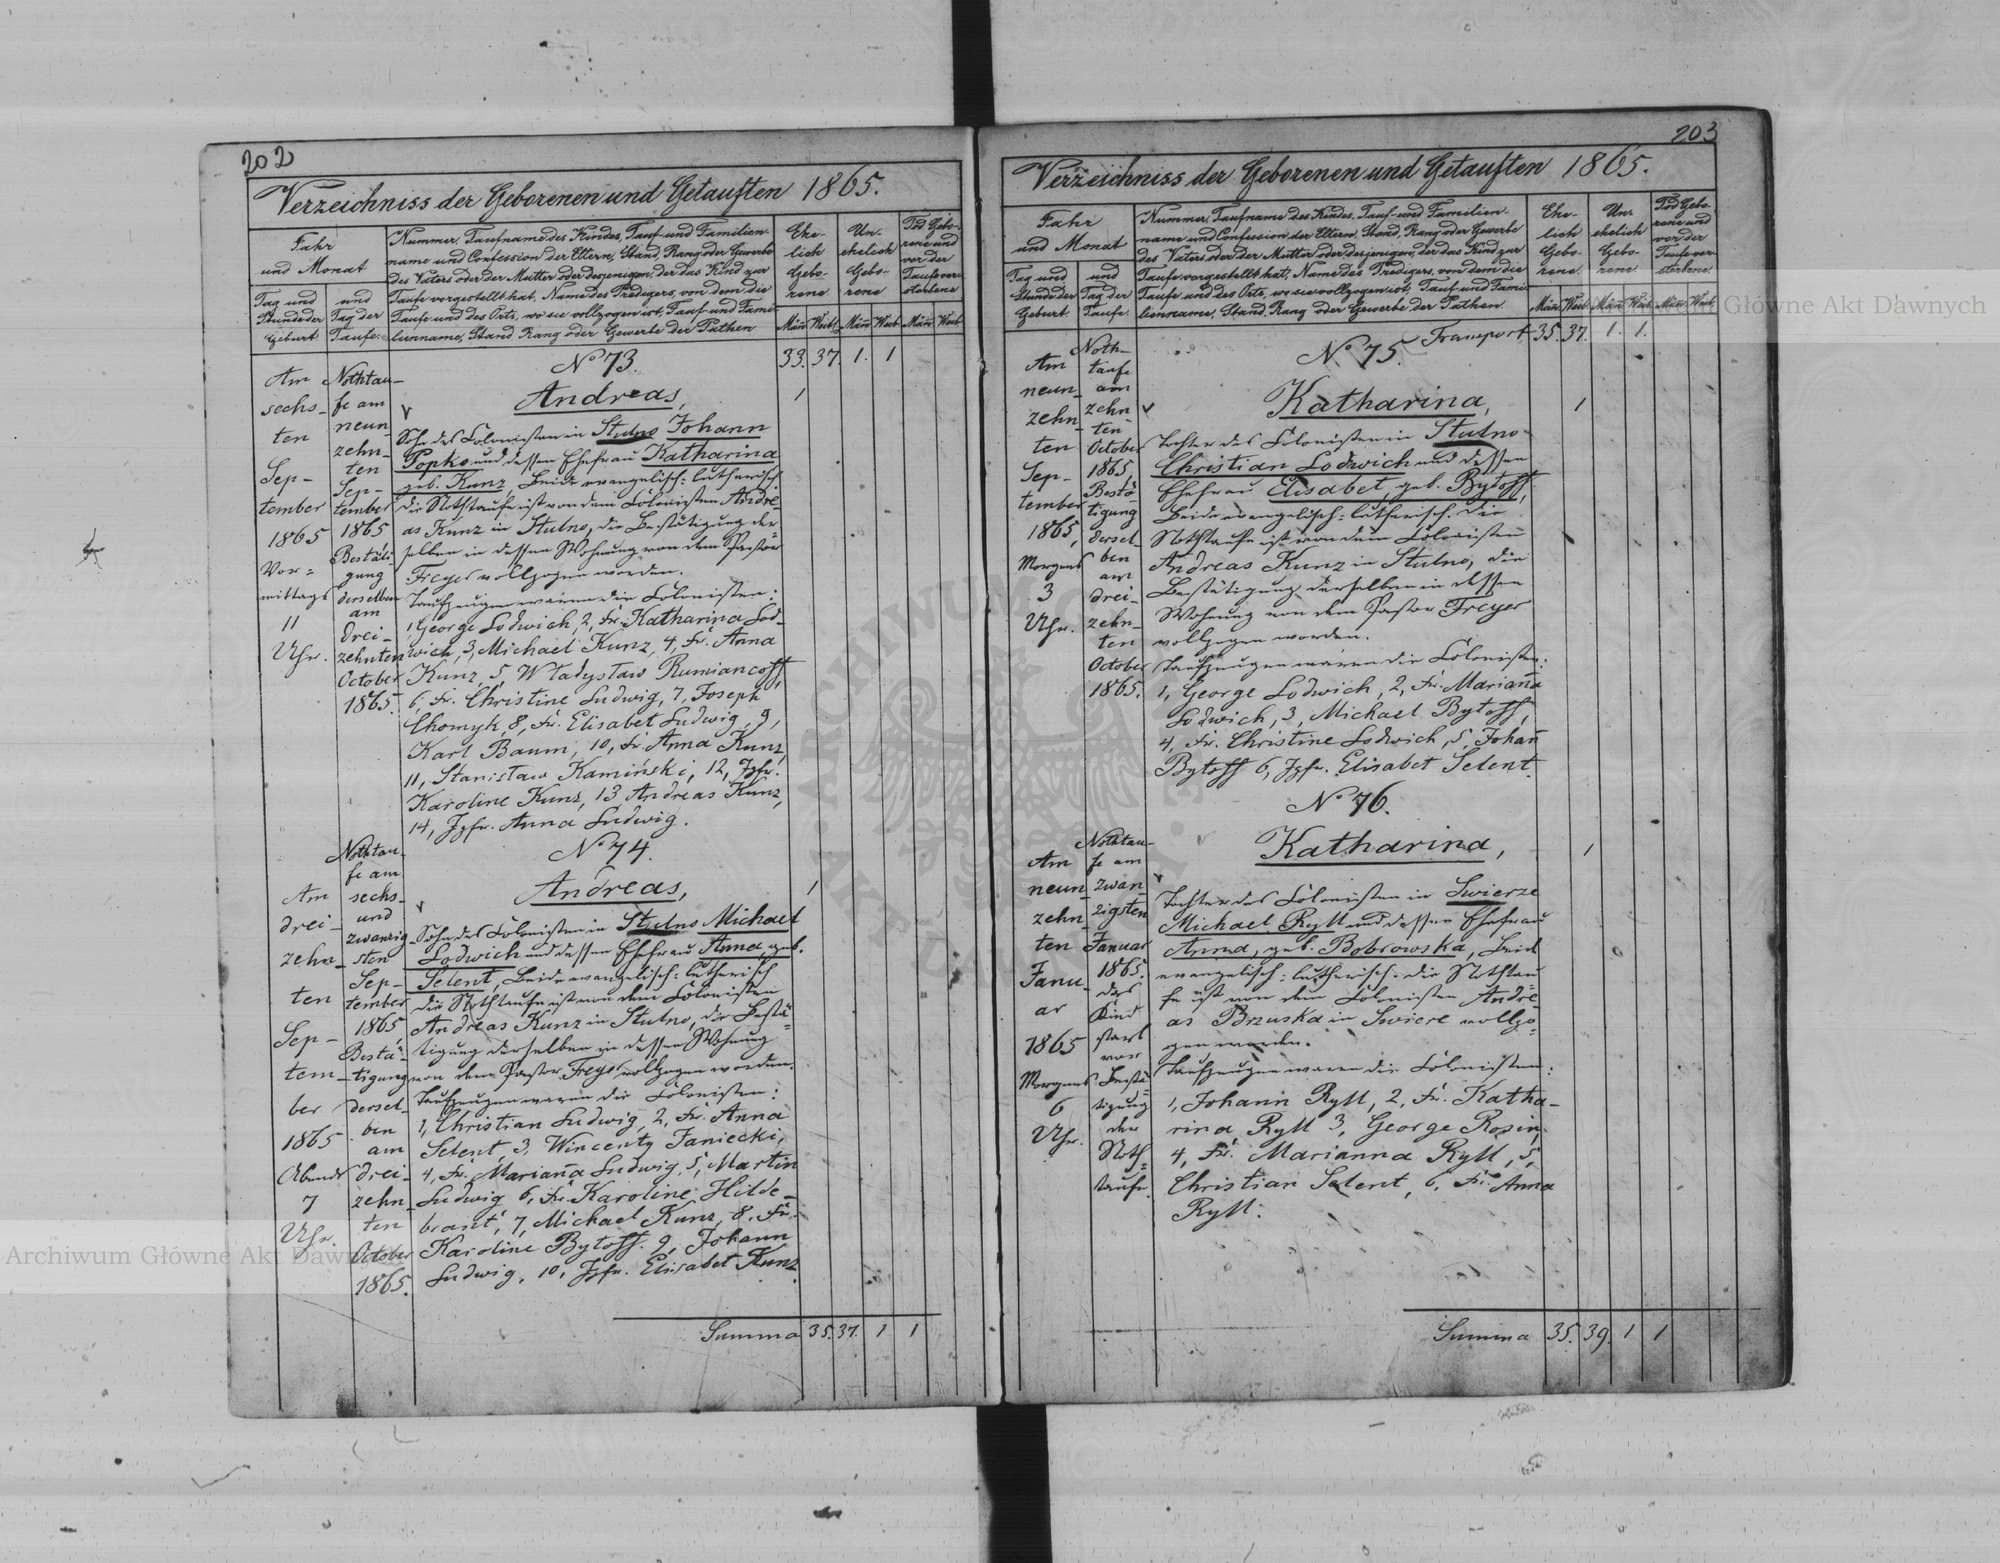 202
Verzeichniss der Geborenen und Getauften 1865.
Jahr
und Monat
Tag und
Stunde der
Geburt
und
Tag der
Taufe
Nummer, Taufname des Kindes, Tauf- und Familien-
name und Confession der Eltern, Stand, Rang oder Gewerbe
des Vaters oder der Mutter oder desjenigen, der das Kind zur
Taufe vorgestellt hat, Name des Predigers, von dem die
Taufe und des Orts, wo sie vollzogen ist, Tauf- und Fami-
lienname, Stand, Rang oder Gewerbe der Pathen
Ehe-
lich
Gebo-
rene
Un-
ehelich
Gebo-
rene
Tod Gebo-
rene und
vor der
Taufe ver-
storbene
Män Weib Män Weib Män Weib
33. 37. 1. 1
Am
sechs-
ten
Sep-
tember
1865
Vor-
mittags
11
Uhr.
Nothtau-
fe am
neun-
zehn-
ten
Sep-
tember
1865
Bestäti-
gung
derselben
am
drei-
zehnten
October
1865.
No 73.
Andreas, 1
Sohn des Colonisten in Stulno Johann
Popko und dessen Ehefrau Katharina
geb. Kunz, Beide evangelisch-lutherisch.
die Nothtaufe ist von dem Colonisten Andre-
as Kunz in Stulno, die Bestätigung der-
selben in dessen Wohnung von dem Pastor
Freyer vollzogen worden.
Taufzeugen waren die Colonisten:
1, George Lodwich, 2, Fr. Katharina Lod-
wich, 3, Michael Kunz, 4, Fr. Anna
Kunz, 5, Władysław Rumiancoff,
6, Fr. Christine Ludwig, 7, Joseph
Chomyk, 8, Fr. Elisabet Ludwig, 9,
Karl Baum, 10, Fr. Anna Kunz,
11, Stanisław Kamiński, 12, Jgfr.
Karoline Kunz, 13 Andreas Kunz,
14, Jgfr. Anna Ludwig.
Am
drei-
zehn-
ten
Sep-
tem-
ber
1865
Abends
7
Uhr.
Nothtau-
fe am
sechs-
und
zwanzig-
sten
Sep-
tember
1865,
Bestä-
tigung
dersel-
ben
am
drei-
zehn-
ten
October
1865.
No 74.
Andreas, 1
Sohn des Colonisten in Stulno Michael
Lodwich und dessen Ehefrau Anna, geb.
Selent, Beide evangelisch-lutherisch
die Nothtaufe ist von dem Colonisten
Andreas Kunz in Stulno, die Bestä-
tigung derselben in dessen Wohnung
von dem Pastor Freyer vollzogen worden.
Taufzeugen waren die Colonisten:
1, Christian Ludwig, 2, Fr. Anna
Selent, 3, Wincenty Janiecki,
4, Fr. Marianna Ludwig, 5, Martin
Ludwig 6, Fr. Karoline Hilde-
brant, 7, Michael Kunz, 8, Fr.
Karoline Bytoff. 9, Johann
Ludwig, 10, Jgfr. Elisabet Kunz
Summa 35. 37. 1 1
203
Verzeichniss der Geborenen und Getauften 1865.
Jahr
und Monat
Tag und
Stunde der
Geburt
und
Tag der
Taufe
Nummer, Taufname des Kindes, Tauf- und Familien-
name und Confession der Eltern, Stand, Rang oder Gewerbe
des Vaters oder der Mutter oder desjenigen, der das Kind zur
Taufe vorgestellt hat, Name des Predigers, von dem die
Taufe und des Orts, wo sie vollzogen ist, Tauf- und Fami-
lienname, Stand, Rang oder Gewerbe der Pathen
Ehe-
lich
Gebo-
rene
Un-
ehelich
Gebo-
rene
Tod Gebo-
rene und
vor der
Taufe ver-
storbene
Män Weib Män Weib Män Weib
Transport 35. 37. 1. 1.
Am
neun-
zehn-
ten
Sep-
tember
1865,
Morgens
3
Uhr.
Noth-
taufe
am
zehn-
ten
October
1865,
Bestä-
tigung
dersel-
ben
am
drei-
zehn-
ten
October
1865.
No 75.
Katharina, 1
Tochter des Colonisten in Stulno
Christian Lodwich und dessen
Ehefrau Elisabet, geb. Bytoff,
Beide evangelisch-lutherisch. die
Nothtaufe ist von dem Colonisten
Andreas Kunz in Stulno, die
Bestätigung derselben in dessen
Wohnung von dem Pastor Freyer
vollzogen worden.
Taufzeugen waren die Colonisten:
1, George Lodwich, 2, Fr. Marianna
Lodwich, 3, Michael Bytoff,
4, Fr. Christine Lodwich, 5, Johan̄
Bytoff 6, Jgfr. Elisabet Selent.
Am
neun-
zehn-
ten
Janu-
ar
1865
Morgens
6
Uhr.
Nothtau-
fe am
zwan-
zigsten
Januar
1865.
das
Kind
starb
vor
Bestä-
tigung
der
Noth-
taufe.
No 76.
Katharina, 1
Tochter des Colonisten in Swierze
Michael Ryll und dessen Ehefrau
Anna, geb. Bobrowska, Beide
evangelisch-lutherisch. die Nothtau-
fe ist von dem Colonisten Andre-
as Brzuska in Swierz vollzo-
gen worden.
Taufzeugen waren die Colonisten:
1, Johann Ryll, 2, Fr. Katha-
rina Ryll 3, George Rosin,
4, Fr. Marianna Ryll, 5,
Christian Selent, 6, Fr. Anna
Ryll.
Summa 35. 39. 1 1
Archiwum Główne Akt Dawnych
Główne Akt Dawnych